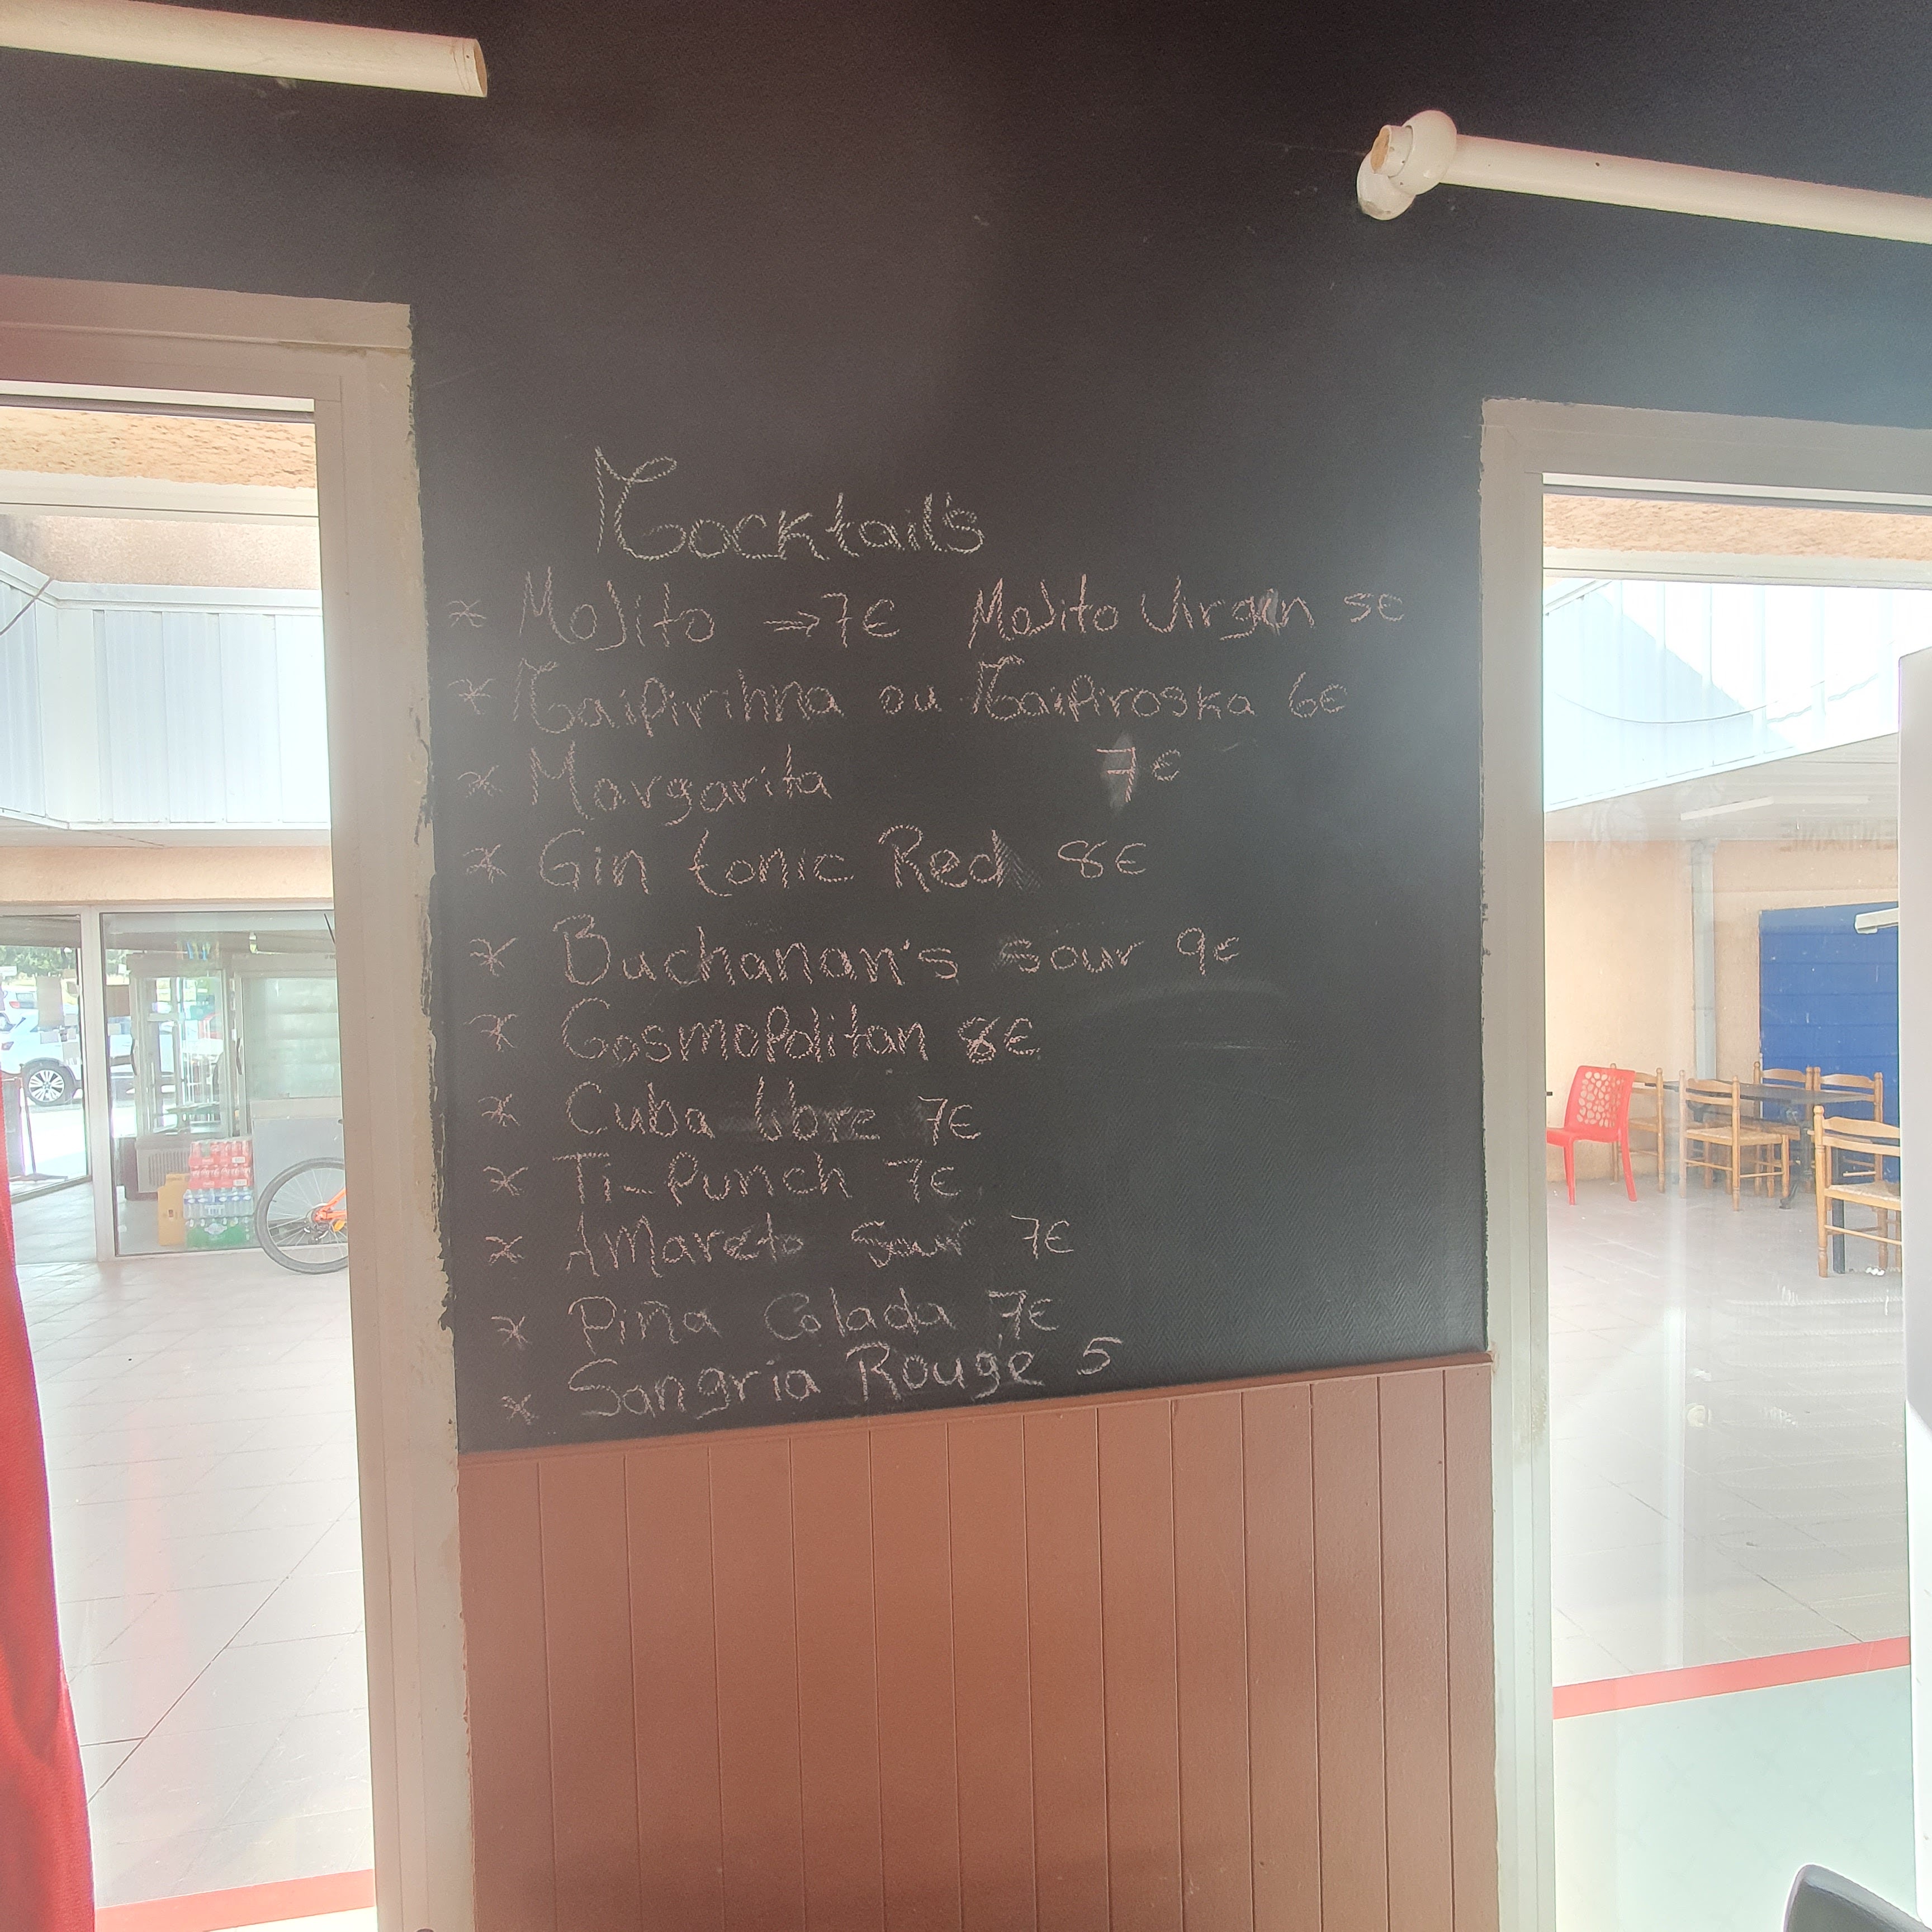 Cocktails
* Mojito → 7€ Mojito Virgin 5€
* Caipirihna ou Caipiroska 6€
* Margarita 7€
* Gin tonic Red 8€
* Buchanan's sour 9€
* Cosmopolitan 8€
* Cuba libre 7€
* Ti-Punch 7€
* Amareto Sour 7€
* Piña Colada 7€
* Sangria Rouge 5